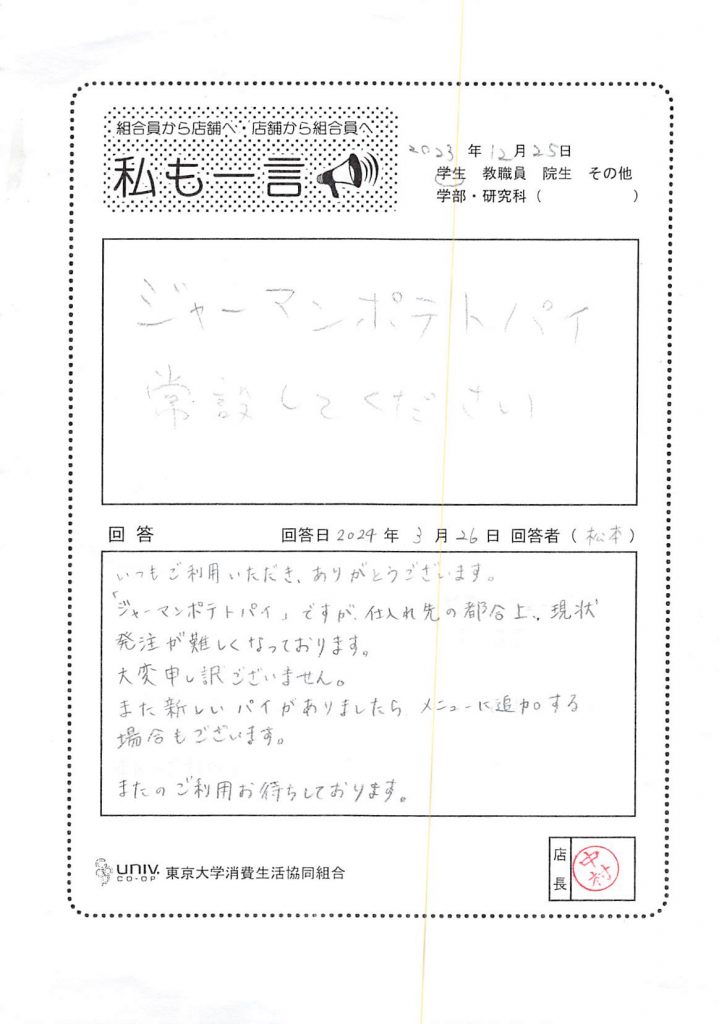 組合員から店舗へ・店舗から組合員へ
私も一言
2023 年 12 月 25 日
学生 教職員 院生 その他
学部・研究科（　　　　　）
ジャーマンポテトパイ
常設してください
回答 回答日 2024 年 3 月 26 日 回答者（松本）
いつもご利用いただき、ありがとうございます。
「ジャーマンポテトパイ」ですが、仕入れ先の都合上、現状
発注が難しくなっております。
大変申し訳ございません。
また新しいパイがありましたら メニューに追加する
場合もございます。
またのご利用お待ちしております。
UNIV.
CO-OP
東京大学消費生活協同組合
店長
中村